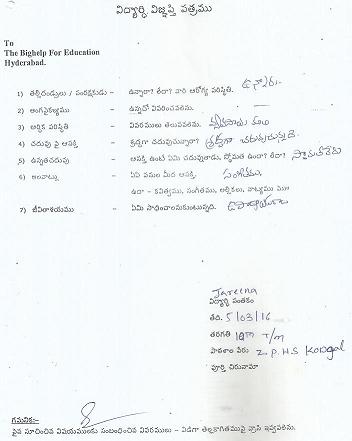 విద్యార్థి విజ్ఞప్తి పత్రము
To
The Bighelp For Education
Hyderabad.
1) తల్లిదండ్రులు / సంరక్షకుడు - ఉన్నారా? లేరా? వారి ఆరోగ్య పరిస్థితి. ఉన్నారు.
2) అంగవైకల్యము - ఉన్నచో వివరించవలెను.
3) ఆర్థిక పరిస్థితి - వివరములు తెలుపవలెను. కూలి
4) చదువు పై ఆసక్తి - శ్రద్ధగా చదువుచున్నారా? శ్రద్ధగా చదువుచున్నది.
5) ఉన్నతచదువు - ఆసక్తి ఉంటే ఏమి చదువుతాడు, స్తోమత ఉందా? లేదా? స్తోమతలేదు
6) అలవాట్లు - ఏఏ పనుల మీద ఆసక్తి. సంగీతము
ఉదా - కవిత్వము, సంగీతము, ఆర్టికలు, నాట్యము మొ॥
7) జీవితాశయము - ఏమి సాధించాలనుకుంటున్నది. ఉపాధ్యాయురాలు
Jareena
విద్యార్థి సంతకం
తేది. 5/03/16
తరగతి 10th T/m
పాఠశాల పేరు Z.P.H.S Kodgal
పూర్తి చిరునామా
గమనిక:-
పైన సూచించిన విషయములకు సంబంధించిన వివరములు - విడిగా తెల్లకాగితముపై వ్రాసి ఇవ్వవలెను.